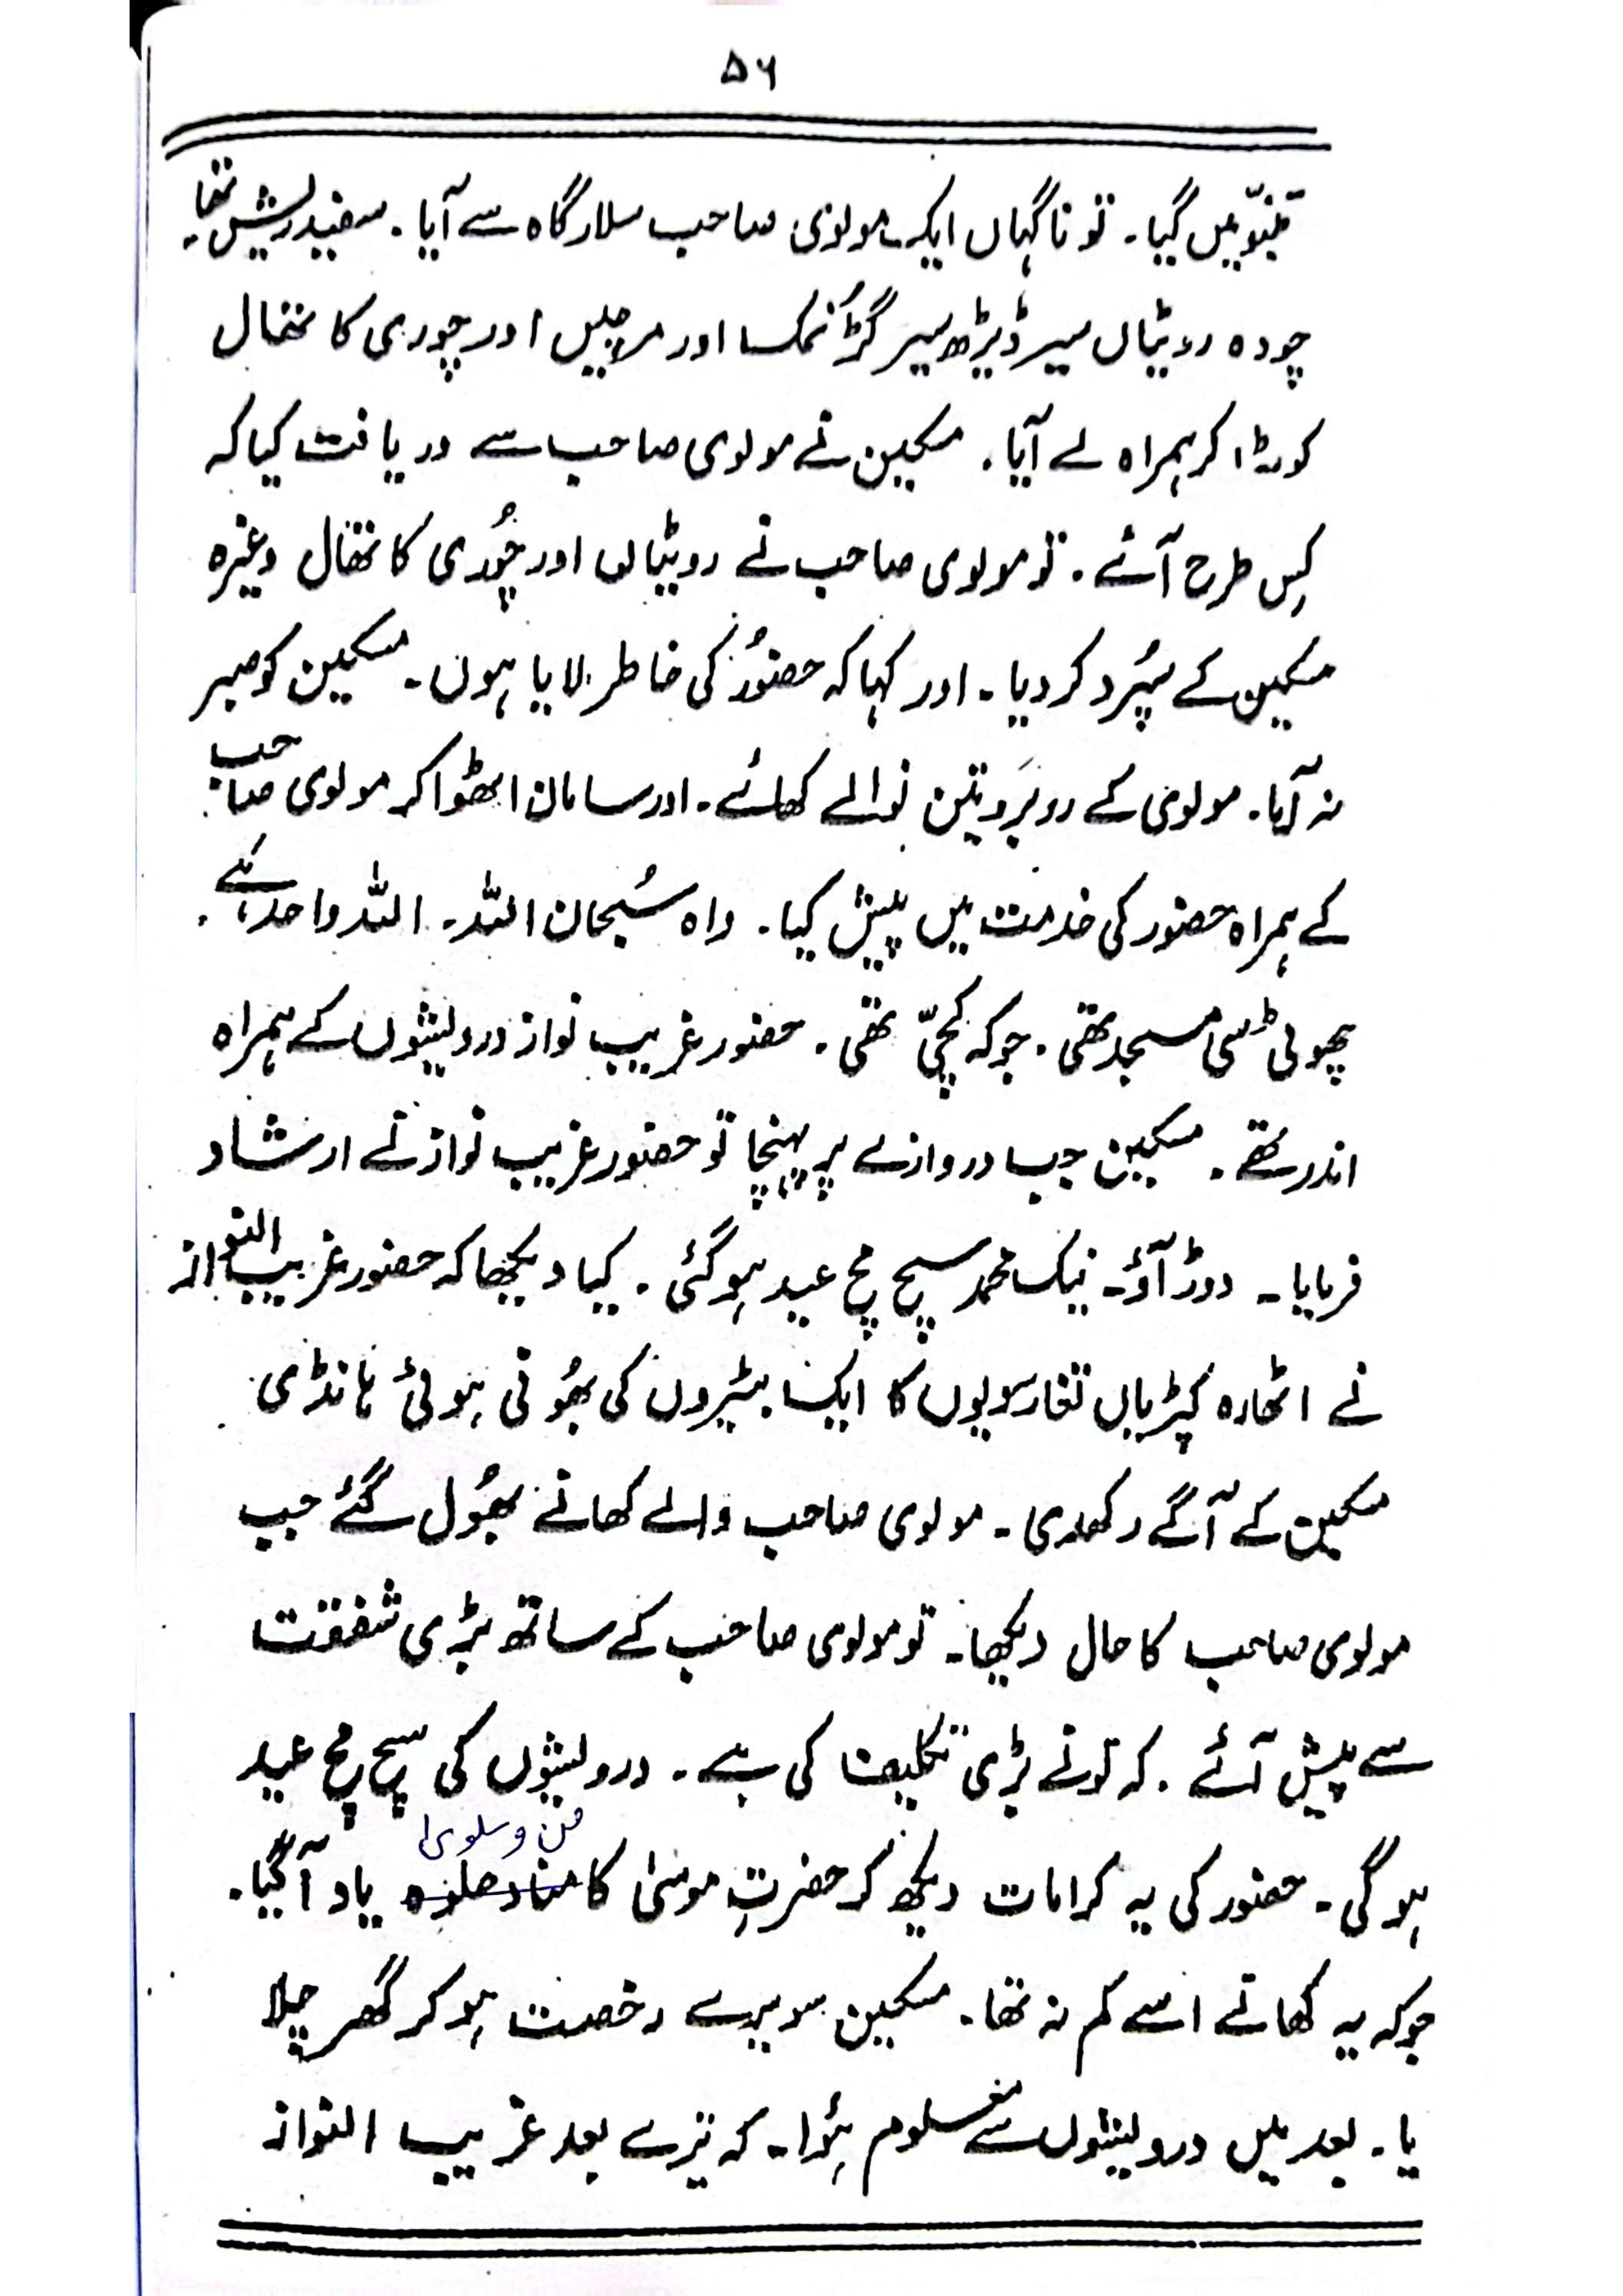 ۵۶
تنبّو میں گیا۔ تو ناگہاں ایک مولوی صاحب سلارگاہ سے آیا۔ سفید ریش تھا۔
چودہ روٹیاں سیر ڈیڑھ سیر گڑ نمک اور مرچیں اور چوری کا تھال
کوٹا کر ہمراہ لے آیا۔ مسکین نے مولوی صاحب سے دریافت کیا کہ
کِس طرح آئے۔ تو مولوی صاحب نے روٹیاں اور چُوری کا تھال وغیرہ
مسکین کے سپُرد کر دیا۔ اور کہا کہ حضوُر کی خاطر لایا ہوں۔ مسکین کو صبر
نہ آیا۔ مولوی کے روبرَو تین نوالے کھائے۔ اور سامان اٹھوا کر مولوی صاحب
کے ہمراہ حضور کی خدمت میں پیش کیا۔ واہ سُبحان اللہ۔ اللہ واحد کے۔
چھوٹی سی مسجد تھی۔ جو کہ کچّی تھی۔ حضور غریب نواز درویشوں کے ہمراہ
اندر تھے۔ مسکین جب دروازے پر پہنچا تو حضور غریب نواز نے ارشاد
فرمایا۔ دوڑ آؤ۔ نیک محمد سچ مچ عید ہو گئی۔ کیا دیکھا کہ حضور غریب النواز
نے اٹھارہ کی ایک بٹیروں کی بھُونی ہوئی ہانڈی
مسکین کے آگے رکھدی۔ مولوی صاحب والے کھانے بھُول گئے جب
مولوی صاحب کا حال دیکھا۔ تو مولوی صاحب کے ساتھ بڑی شفقت
سے پیش آئے۔ کہ تونے بڑی تکلیف کی ہے۔ درویشوں کی سچ مچ عید
من و سلویٰ
ہو گی۔ حضور کی یہ کرامات دیکھ کر حضرتِ موسیٰ کا یاد آ گیا۔
جو کہ یہ کھانے اسے کم نہ تھا۔ مسکین سویرے رخصت ہو کر گھر چلا
یا۔ بعد میں درویشوں سے معلوم ہوُا۔ کہ تیرے بعد غریب النواز